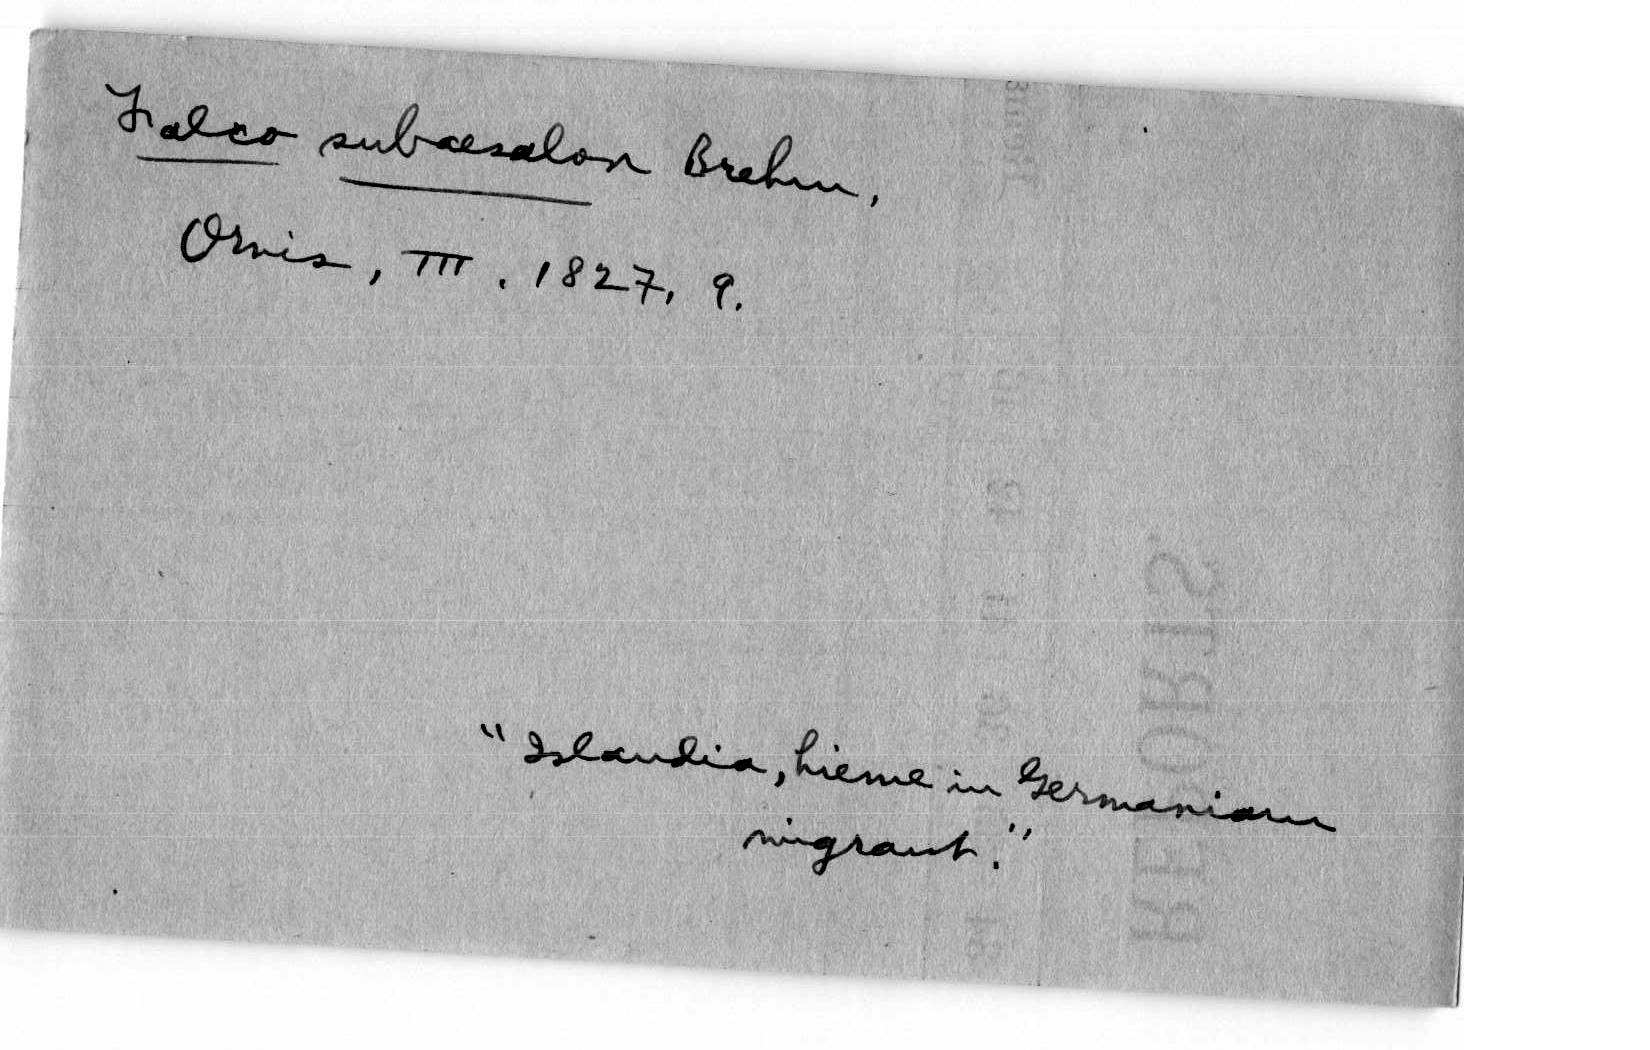 Falco subaesalon Brehm,
Ornis, III. 1827, 9.
"Islandia, hieme in Germaniam
migrant."
REPORTS